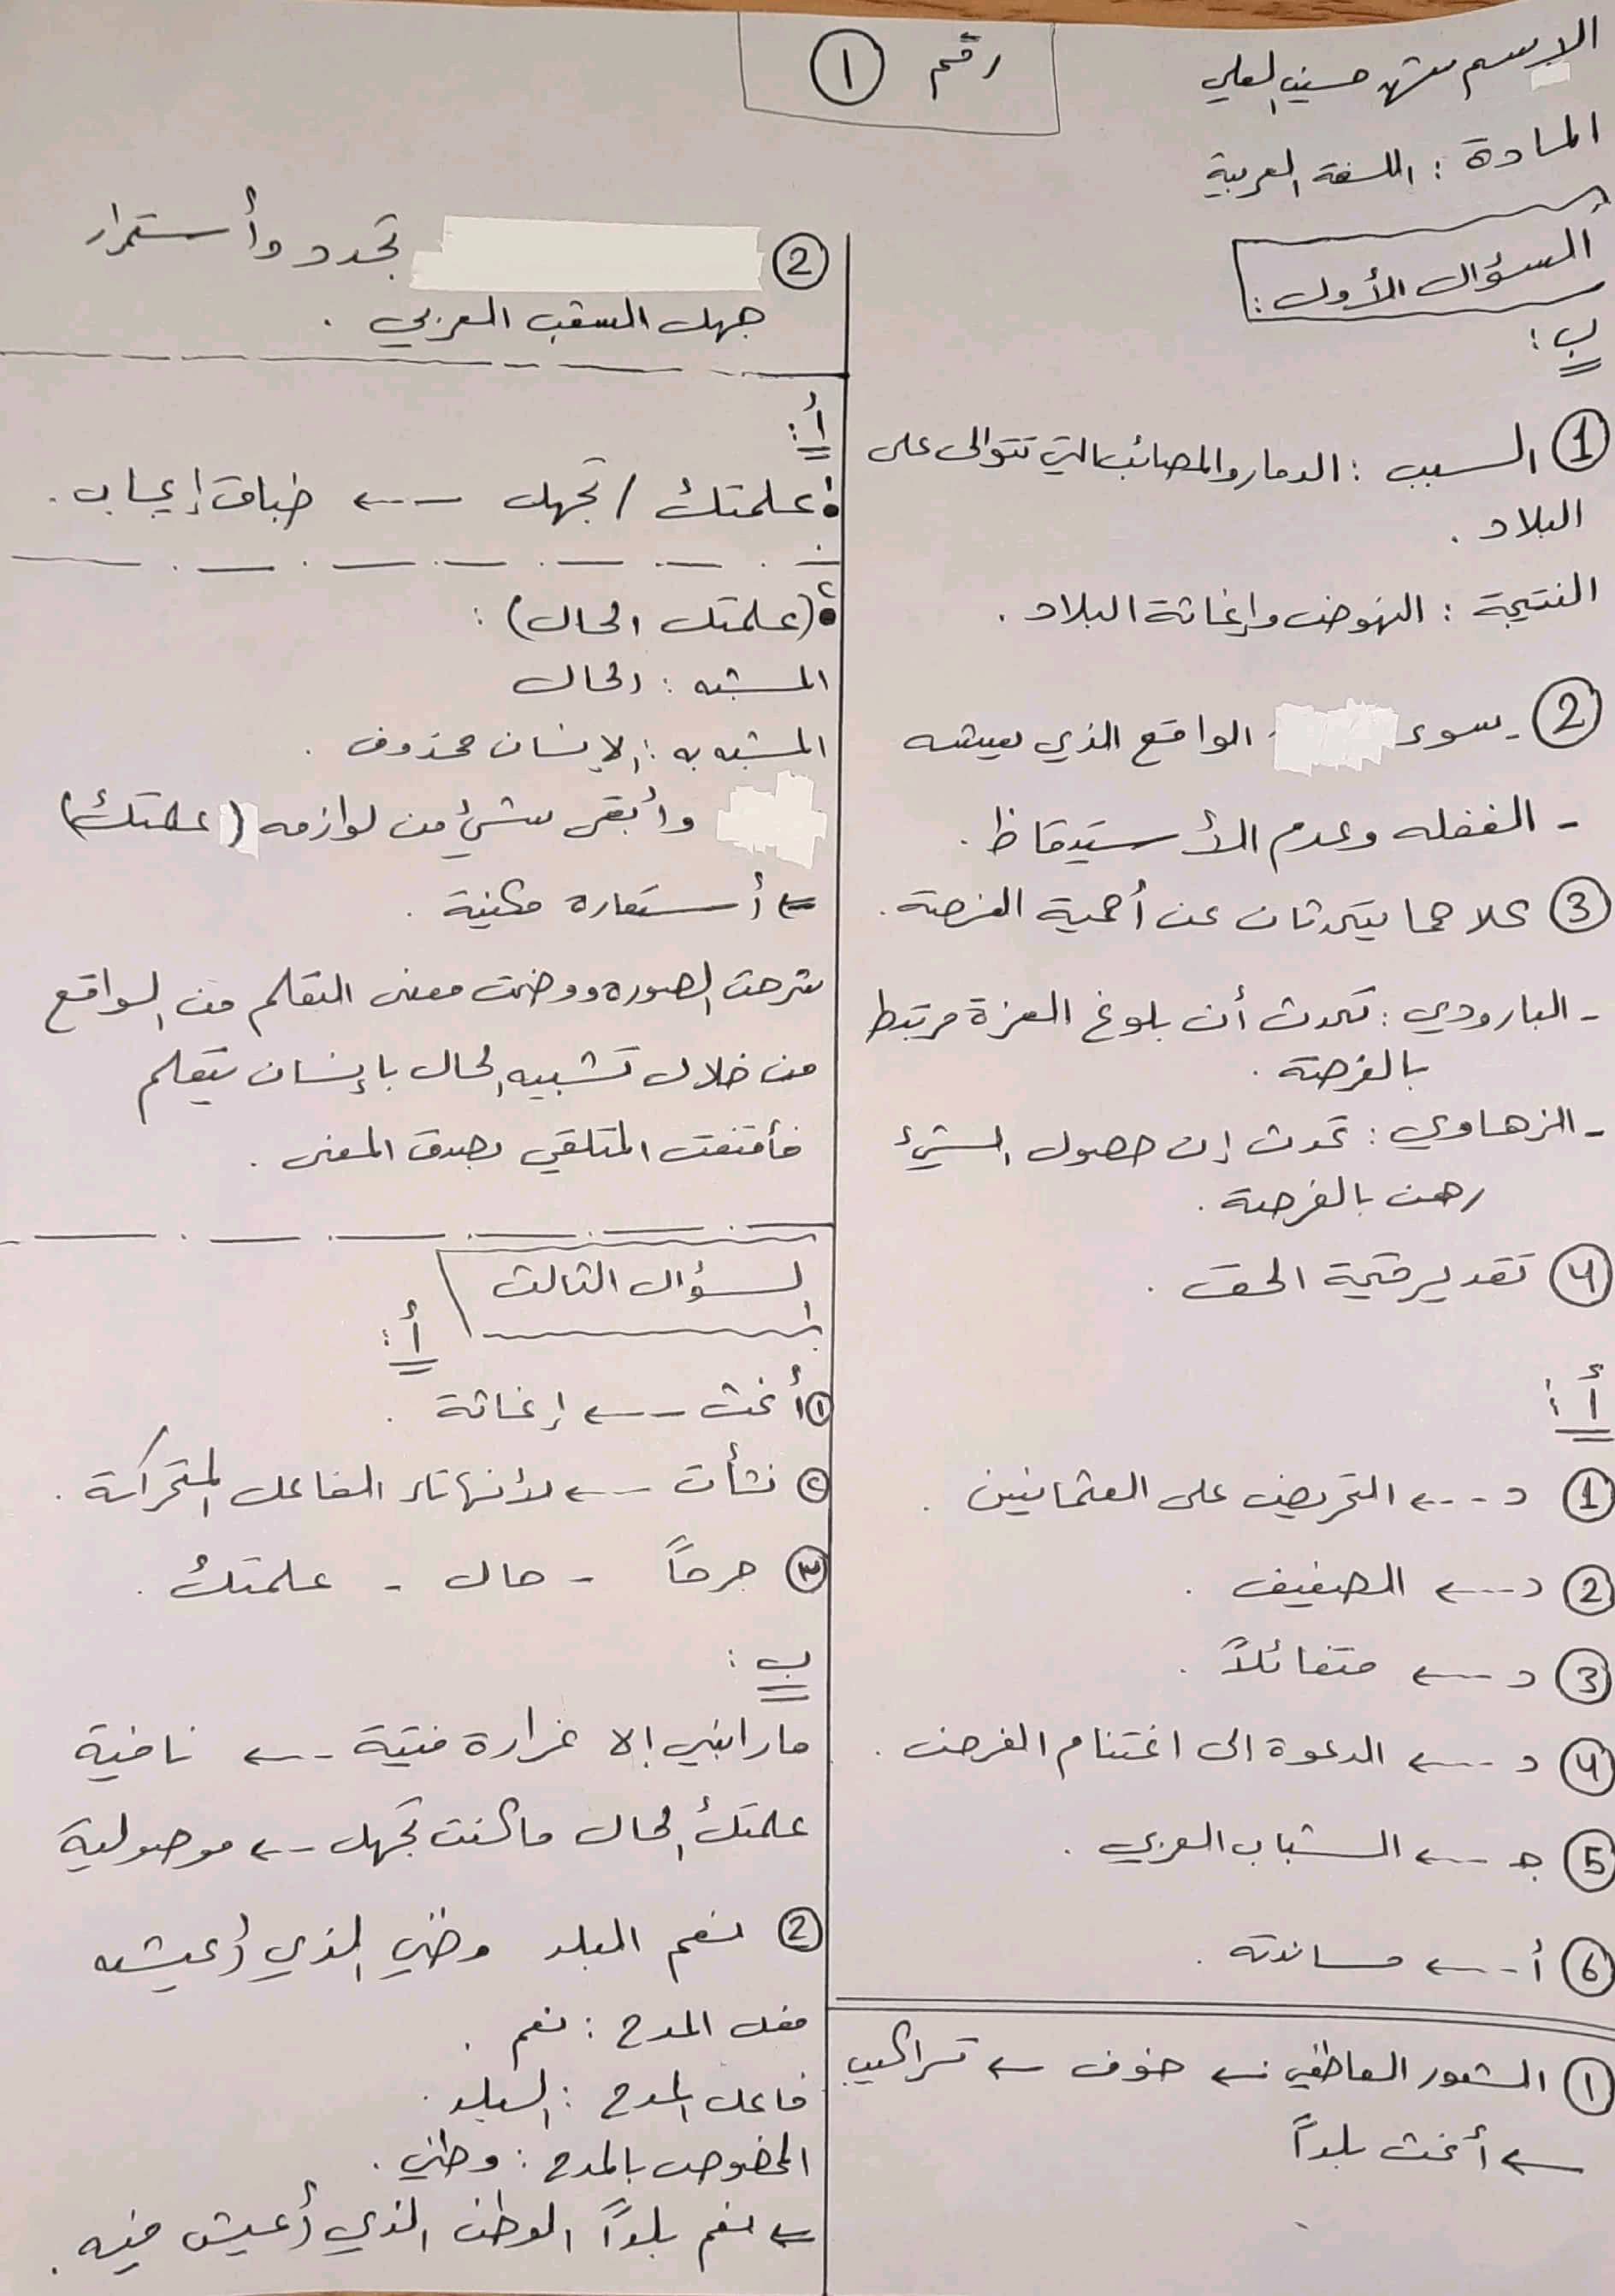 رقم ①
الاسم حسين العلي
المادة : اللغة العربية
السؤال الأول :
ب :
① السبب : الدمار والمصائب التي تتوالى على
البلاد .
النتيجة : النهوض وإغاثة البلاد .
② - سوء الواقع الذي يعيشه
- الغفله وعدم الأستيقاظ .
③ كلاهما يتحدثان عن أهمية الفرصة .
- البارودي : تحدث أن بلوغ العزة مرتبط
بالفرصة .
- الزهاوي : تحدث إن حصول الشيء
رهن بالفرصة .
④ تقدير قيمة الحق .
أ :
① د ---← التحريض على العثمانيين .
② د ---← الضعيف .
③ د ---← متفائلاً .
④ د ---← الدعوة الى اغتنام الفرص .
⑤ ج ---← الشباب العربي .
⑥ أ --← مساندته .
① الشعور العاطفي ← خوف ← تراكيب
← أغث بلداً
② تجدد وأستمرار
جهل الشعب العربي .
أ :
١. علمتك / تجهل --← طباق إيجاب .
٢. (علمتك الحال) :
المشبه : الحال
المشبه به : الإنسان محذوف .
وأبقى شيء من لوازمه (علمتك)
⇐ أستعاره مكنية .
شرحت الصوره ووضحت معنى التعلم من الواقع
من خلال تشبيه الحال بإنسان يتعلم
فأقنعت المتلقي بصدق المعنى .
السؤال الثالث
أ :
① أغث --← إغاثة .
② نشأت --← لأنها تاء الفاعل المتحركة .
③ جرحاً - حال - علمتك .
ب :
ما رابني إلا غرارة فتية --← نافية
علمتك الحال ما كنت تجهل --← موصولية
② نعم البلد وطني الذي أعيشه
فعل المدح : نعم .
فاعل المدح : البلد .
المخصوص بالمدح : وطني .
⇐ نعم بلداً الوطن الذي أعيش فيه .